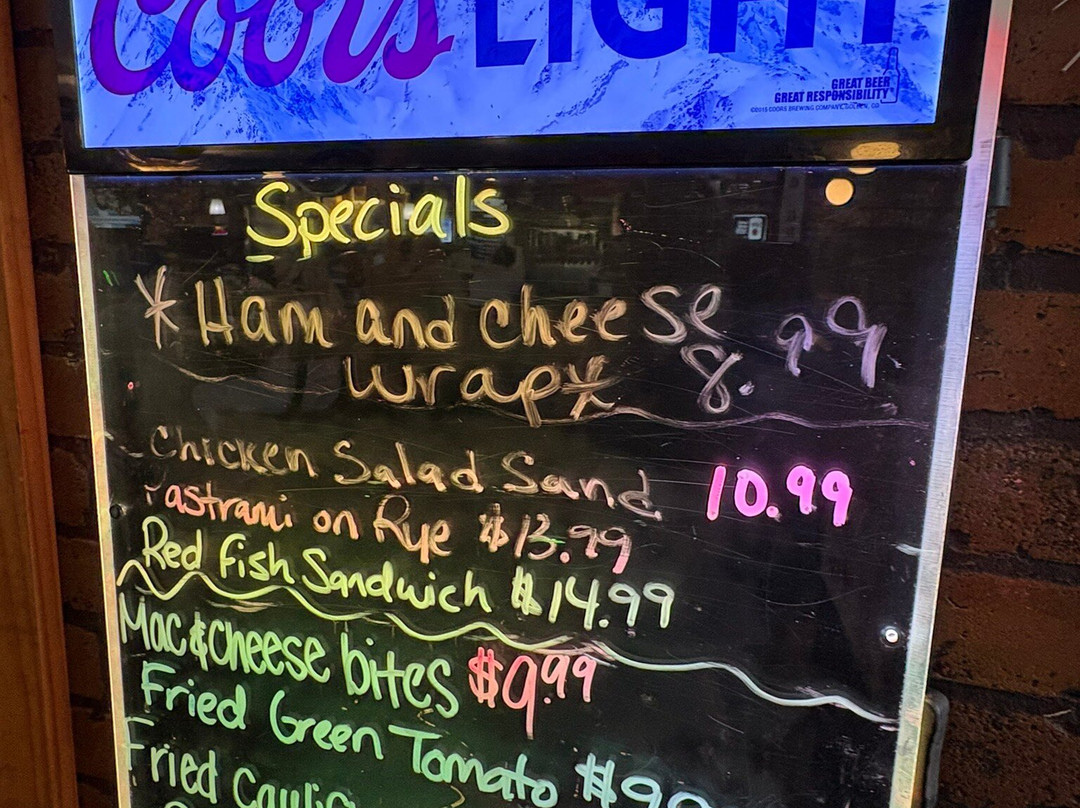 Coors LIGHT
GREAT BEER
GREAT RESPONSIBILITY
©2015 COORS BREWING COMPANY, GOLDEN, CO
Specials
* Ham and cheese 8.99
wrap*
Chicken Salad Sand 10.99
Pastrami on Rye $13.99
Red Fish Sandwich $14.99
Mac & Cheese bites $9.99
Fried Green Tomato $9.99
Fried